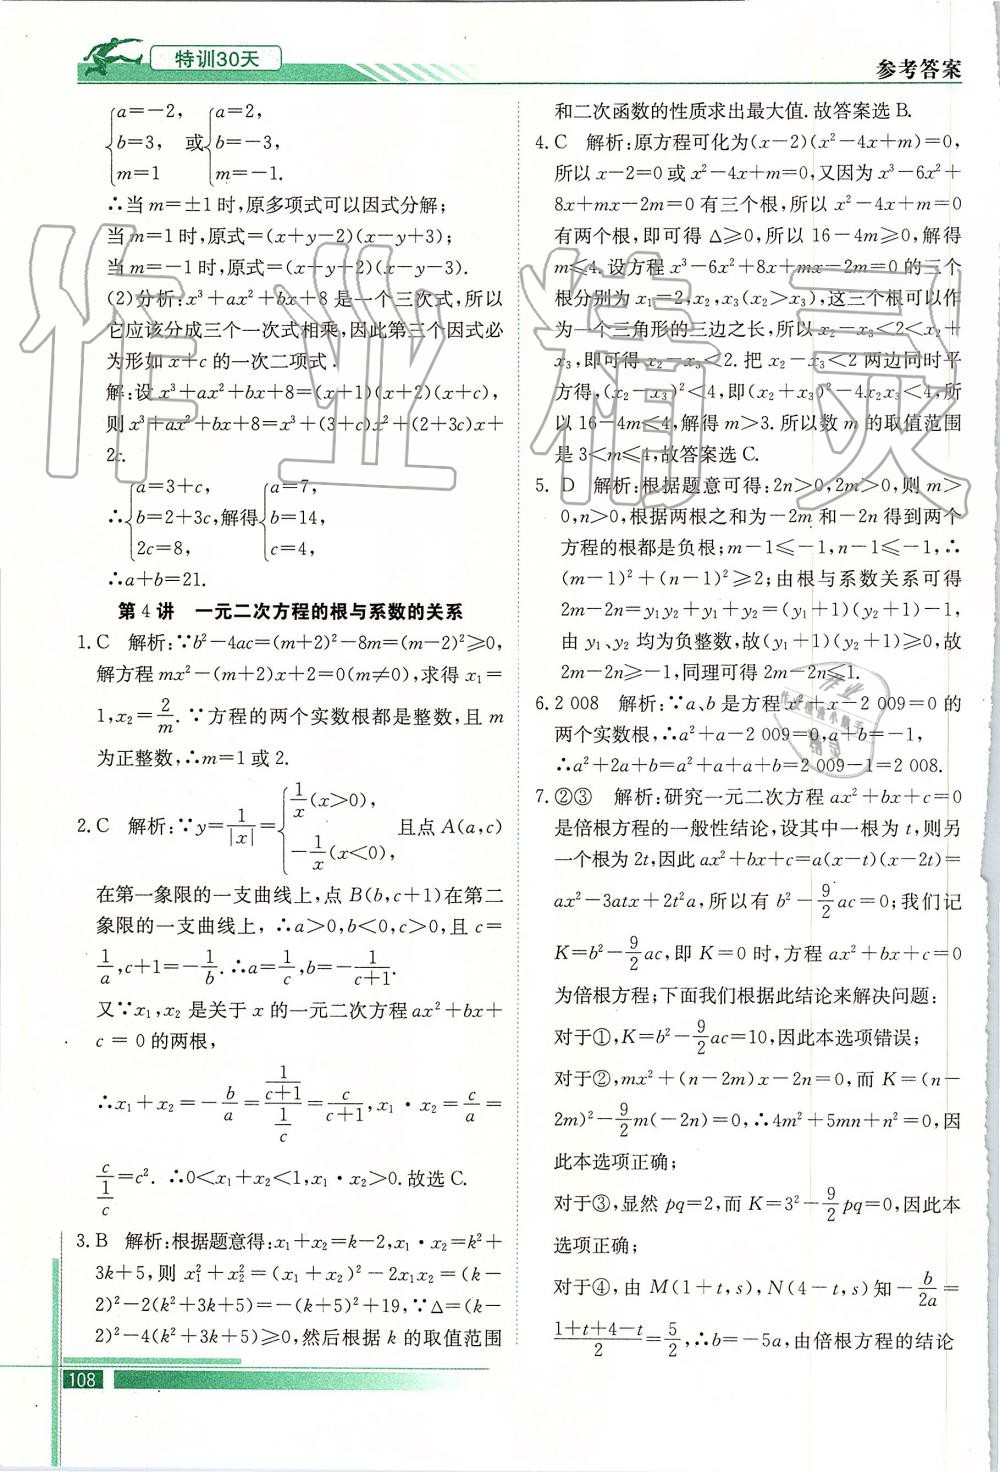 特训30天
参考答案
{a=-2, b=3, m=1 或 {a=2, b=-3, m=-1.
∴当 m=±1 时,原多项式可以因式分解;
当 m=1 时,原式=(x+y-2)(x-y+3);
当 m=-1 时,原式=(x+y+2)(x-y-3).
(2)分析:x³+ax²+bx+8 是一个三次式,所以
它应该分成三个一次式相乘,因此第三个因式必
为形如 x+c 的一次二项式.
解:设 x³+ax²+bx+8=(x+1)(x+2)(x+c),
则 x³+ax²+bx+8=x³+(3+c)x²+(2+3c)x+
2c.
∴{a=3+c, b=2+3c, 2c=8, 解得{a=7, b=14, c=4,
∴a+b=21.
第 4 讲 一元二次方程的根与系数的关系
1. C 解析:∵b²-4ac=(m+2)²-8m=(m-2)²≥0,
解方程 mx²-(m+2)x+2=0(m≠0),求得 x₁=
1,x₂=2/m.∵方程的两个实数根都是整数,且 m
为正整数,∴m=1 或 2.
2. C 解析:∵y=1/|x|={1/x(x>0), -1/x(x<0), 且点 A(a,c)
在第一象限的一支曲线上,点 B(b,c+1)在第二
象限的一支曲线上,∴a>0,b<0,c>0,且 c=
1/a,c+1=-1/b.∴a=1/c,b=-1/(c+1).
又∵x₁,x₂ 是关于 x 的一元二次方程 ax²+bx+
c = 0 的两根,
∴x₁+x₂=-b/a=(1/(c+1))/(1/c)=c/(c+1),x₁·x₂=c/a=
c/(1/c)=c². ∴0<x₁+x₂<1,x₁·x₂>0.故选 C.
3. B 解析:根据题意得:x₁+x₂=k-2,x₁·x₂=k²+
3k+5,则 x₁²+x₂²=(x₁+x₂)²-2x₁x₂=(k-
2)²-2(k²+3k+5)=-(k+5)²+19,∵Δ=(k-
2)²-4(k²+3k+5)≥0,然后根据 k 的取值范围
108
和二次函数的性质求出最大值.故答案选 B.
4. C 解析:原方程可化为(x-2)(x²-4x+m)=0,
所以 x-2=0 或 x²-4x+m=0,又因为 x³-6x²+
8x+mx-2m=0 有三个根,所以 x²-4x+m=0
有两个根,即可得 Δ≥0,所以 16-4m≥0,解得
m≤4.设方程 x³-6x²+8x+mx-2m=0 的三个
根分别为 x₁=2,x₂,x₃(x₂>x₃),这三个根可以作
为一个三角形的三边之长,所以 x₂-x₃<2<x₂+
x₃,即可得 x₂-x₃<2.把 x₂-x₃<2 两边同时平
方得,(x₂-x₃)²<4,即(x₂+x₃)²-4x₂x₃<4,所
以 16-4m<4,解得 m>3.所以数 m 的取值范围
是 3<m≤4,故答案选 C.
5. D 解析:根据题意可得:2n>0,2m>0,则 m>
0,n>0,根据两根之和为-2m 和-2n 得到两个
方程的根都是负根;m-1≤-1,n-1≤-1,∴
(m-1)²+(n-1)²≥2;由根与系数关系可得
2m-2n=y₁y₂+y₁+y₂=(y₁+1)(y₂+1)-1,
由 y₁、y₂ 均为负整数,故(y₁+1)(y₂+1)≥0,故
2m-2n≥-1,同理可得 2m-2n≤1.
6. 2 008 解析:∵a、b 是方程 x²+x-2 009=0 的
两个实数根,∴a²+a-2 009=0,a+b=-1,
∴a²+2a+b=a²+a+a+b=2 009-1=2 008.
7. ②③ 解析:研究一元二次方程 ax²+bx+c=0
是倍根方程的一般性结论,设其中一根为 t,则另
一个根为 2t,因此 ax²+bx+c=a(x-t)(x-2t)=
ax²-3atx+2t²a,所以有 b²-9/2ac=0;我们记
K=b²-9/2ac,即 K=0 时,方程 ax²+bx+c=0
为倍根方程;下面我们根据此结论来解决问题:
对于①,K=b²-9/2ac=10,因此本选项错误;
对于②,mx²+(n-2m)x-2n=0,而 K=(n-
2m)²-9/2m(-2n)=0,∴4m²+5mn+n²=0,因
此本选项正确;
对于③,显然 pq=2,而 K=3²-9/2pq=0,因此本
选项正确;
对于④,由 M(1+t,s),N(4-t,s)知-b/2a=
(1+t+4-t)/2=5/2,∴b=-5a,由倍根方程的结论
作业精灵